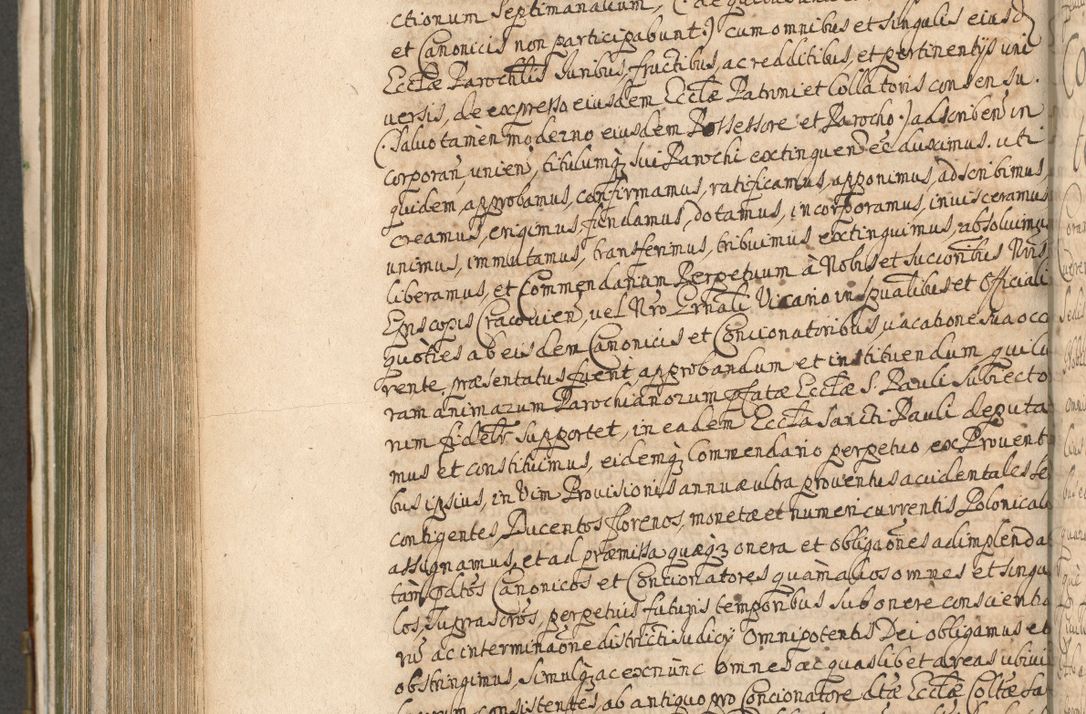 ctionum Septimanalium,
et Canonicis non participabunt.) cum omnibus et singulis eiusd
Ecclæ Parochlis Iuribus, fructibus, ac redditibus, et pertinentijs uni
versis, de expresso eiusdem Ecclæ Patroni et Collatoris consensu.
(. Salvo tamen moderno eiusdem Possessore et Parocho.) adscriben in
corporan, unien, titulumq sui Parochi extinguen eē duximus. uti
quidem, approbamus, confirmamus, ratificamus, apponimus, adscribimus,
creamus, erigimus, fundamus, dotamus, incorporamus, invisceramus
unimus, immutamus, transferimus, tribuimus extinguimus, absolvimus
liberamus, et Commendarium Perpetuum à Nobis et Sucioribus Nris
Episcopis Cracovien, vel Nro Grnali Vicario in Spualibus et Officiali
quoties ab eisdem Canonicis et Concionatoribus, vacatione sua occu
rente, præsentatus fuerit, approbandum et instituendum, qui cu
ram animarum Parochianorum pfatæ Ecclæ S. Pauli subiecto
rum fidelr supportet, in eadem Eccla Sancti Pauli deputa
mus et constituimus, eidemq Commendario perpetuo ex Provent
bus ipsius, in vim Provisionis annuæ ultra proventus accidentales se
contigentes, Ducentos florenos, monetæ et numeri currentis Polonicalis
assignamus, et ad præmissa quæq onera et obligaones adimplenda
tam pdtos Canonicos et Concionatores quam alios omnes et singu
los, suprascros, perpetuis futuris temporibus sub onere conscientia
rū ac interminaone districti iudicij Omnipotentis Dei obligamus et
obstringimus, simulq ac ex nunc omnes ac quaslibet areas ubivi
consistentes ab antiquo pro Concionatore dtæ Ecclæ Coltæ Sa